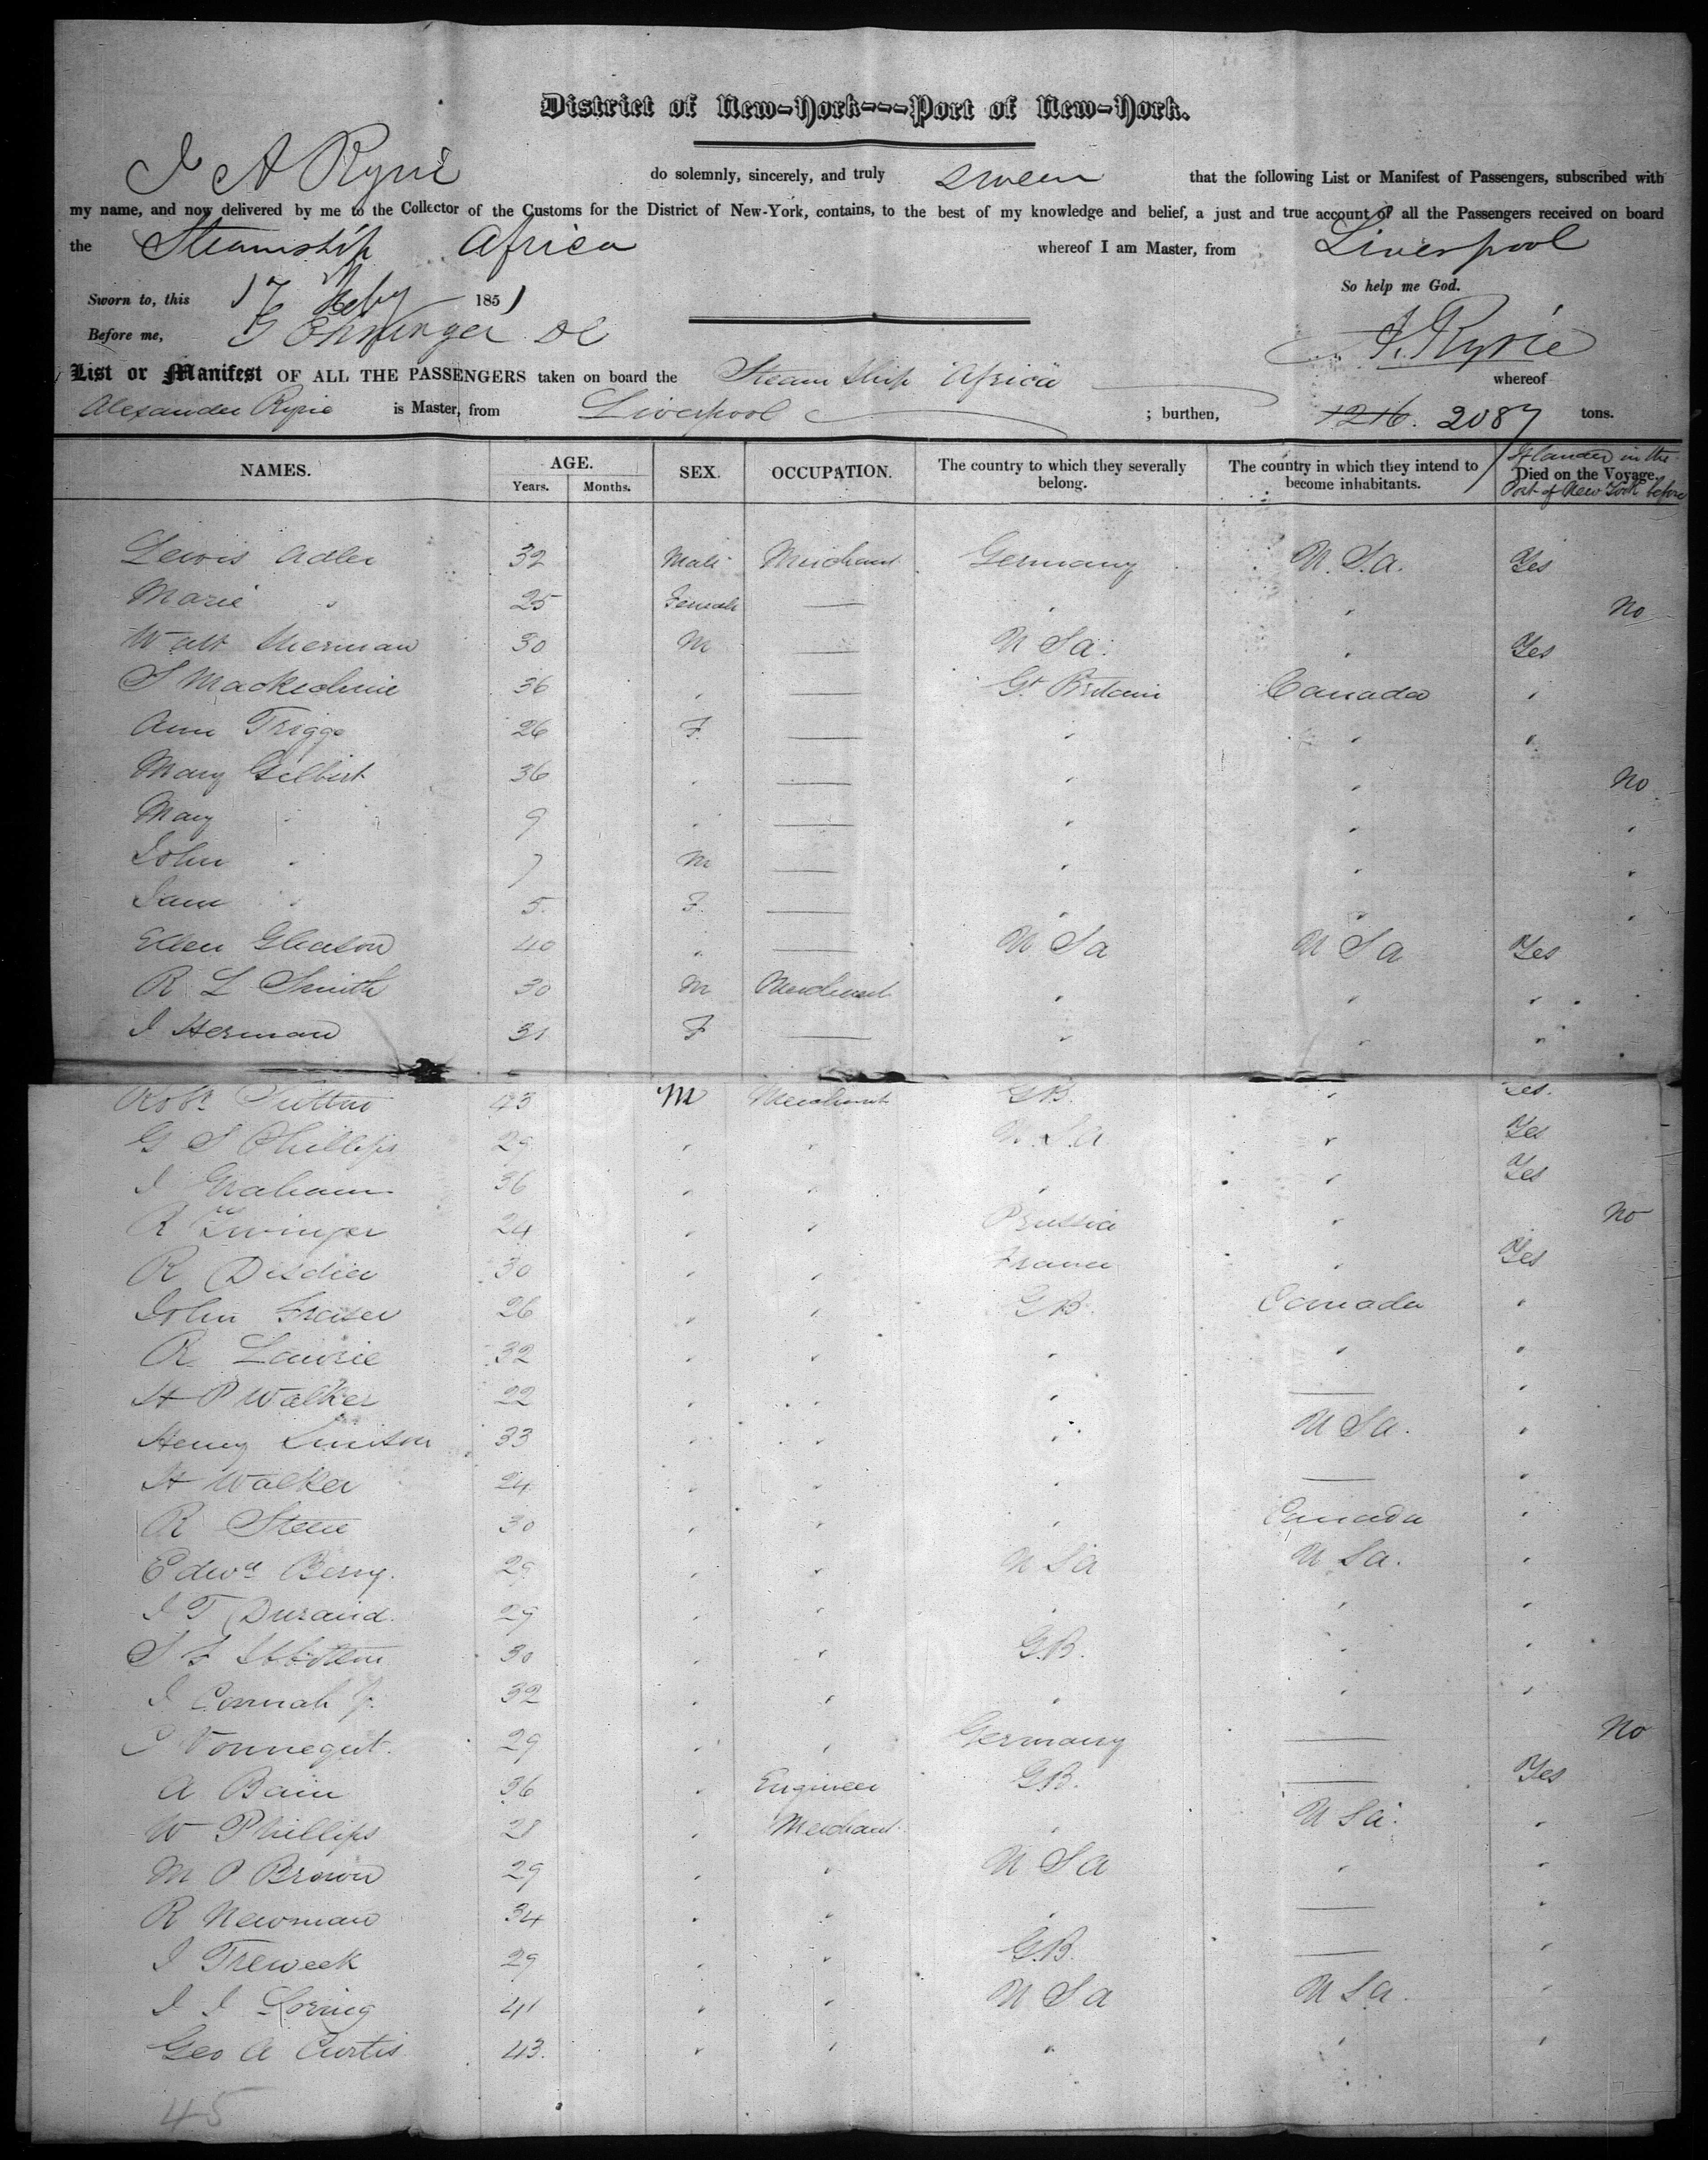 District of New-York---Port of New-York.
I A Ryrie do solemnly, sincerely, and truly swear that the following List or Manifest of Passengers, subscribed with
my name, and now delivered by me to the Collector of the Customs for the District of New-York, contains, to the best of my knowledge and belief, a just and true account of all the Passengers received on board
the Steamship Africa whereof I am Master, from Liverpool
So help me God.
Sworn to, this 17 Feby 1851
Before me, A. Ryrie
List or Manifest OF ALL THE PASSENGERS taken on board the Steam Ship Africa whereof
Alexander Ryrie is Master, from Liverpool ; burthen, 1216. 2087 tons.
NAMES. AGE. Years. Months. SEX. OCCUPATION. The country to which they severally belong. The country in which they intend to become inhabitants. Died on the Voyage. If landed in the Port of New York before
Lewis Adler 32 Male Merchant Germany U.S.a. Yes
Marie " 25 Female — " " No
Walt Sherman 30 M — U Sa. " Yes
S 36 " — Gt Britain Canada "
Ann Trigge 26 F. — " " "
Mary Gilbert 36 " — " " No
Mary " 9 " — " " "
John " 7 M — " " "
Jane " 5 F. — " " "
Ellen Gleason 40 " — U Sa U Sa Yes
R L Smith 30 M Merchant " " "
J Herman 31 F — " " "
Robt Sutton 43 M Merchant GB. " Yes.
G S Phillips 29 " " U.S.a. " Yes
J Graham 36 " " " " Yes
R 24 " " Prussia " No
R Disdier 30 " " France " Yes
John Fraser 26 " " GB. Canada "
R. Lawrie 32 " " " " "
H P Walker 22 " " " — "
Henry 33 " " " U Sa. "
H Walker 24 " " " — "
R Steele 30 " " " Canada "
Edwd Berry. 29 " " U Sa U Sa. "
J T Durand. 29 " " " " "
S 30 " " G.B. " "
J Connah Jr. 32 " " " " "
C Vonnegut. 29 " " Germany — No
A Bain 36 " Engineer G.B. — Yes
W Phillips 28 " Merchant " U Sa. "
M P Brown 29 " " U Sa " "
R Newman 34 " " " — "
J Treweek 29 " " G.B. — "
J J Loring 41 " " U Sa U Sa. "
Geo A Curtis 43. " " " " "
45